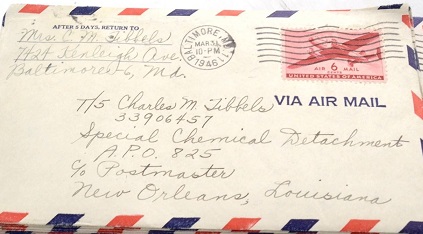 AFTER 5 DAYS, RETURN TO
Mrs. C. M. Tibbels
Kenleigh Ave.
Baltimore 6, Md.
BALTIMORE, MD.
MAR 31
10-PM
1946
AIR 6¢ MAIL
UNITED STATES OF AMERICA
VIA AIR MAIL
T/5 Charles M Tibbels
33906457
Special Chemical Detachment
A.P.O. 825
c/o Postmaster
New Orleans, Louisiana